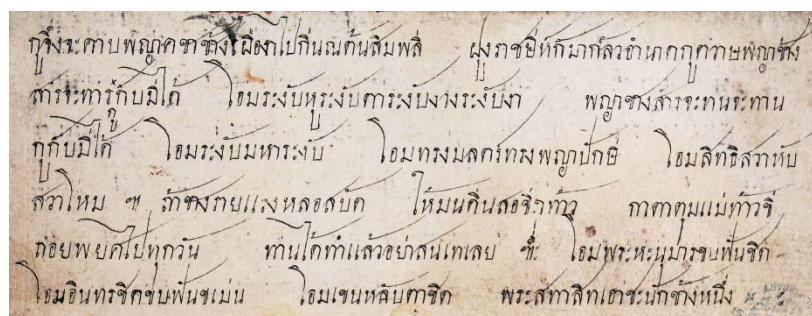 กูจึ่งจะคาบพญาคชาช้างเผือกไปกินณต้นสิมพลี ฝูงราชสีห์ก็มากลัวอำนาคกูคว่าษพญาช้าง
สารจะทารกู่กับมิได้ โอมระงับหูระงับตาระงับงวงระงับงา พญาชางสารจะทนจะทาน
กูกับมิได้ โอมระงับมหาระงับ โอมทรงมลตร์ทรงพญาปักษี โอมสิทธิสวาหับ
สวาโหม ๚ ถ้าช้างกายแวงหลอสบัด ให้มนดินสอ ท้าว กาตาตุมแม่ท้าวจี่
ถอยพยศไปทุกวัน ท่านได้ทำแล้วอย่าสนเทเลย ๚ะ โอมพระหะนุมารขบฟันชิด
โอมอินทรชิดขบฟันชแม่น โอมเขนหลับตาชิด พระสทาสิทเอาชะนักช้างหนึ่ง